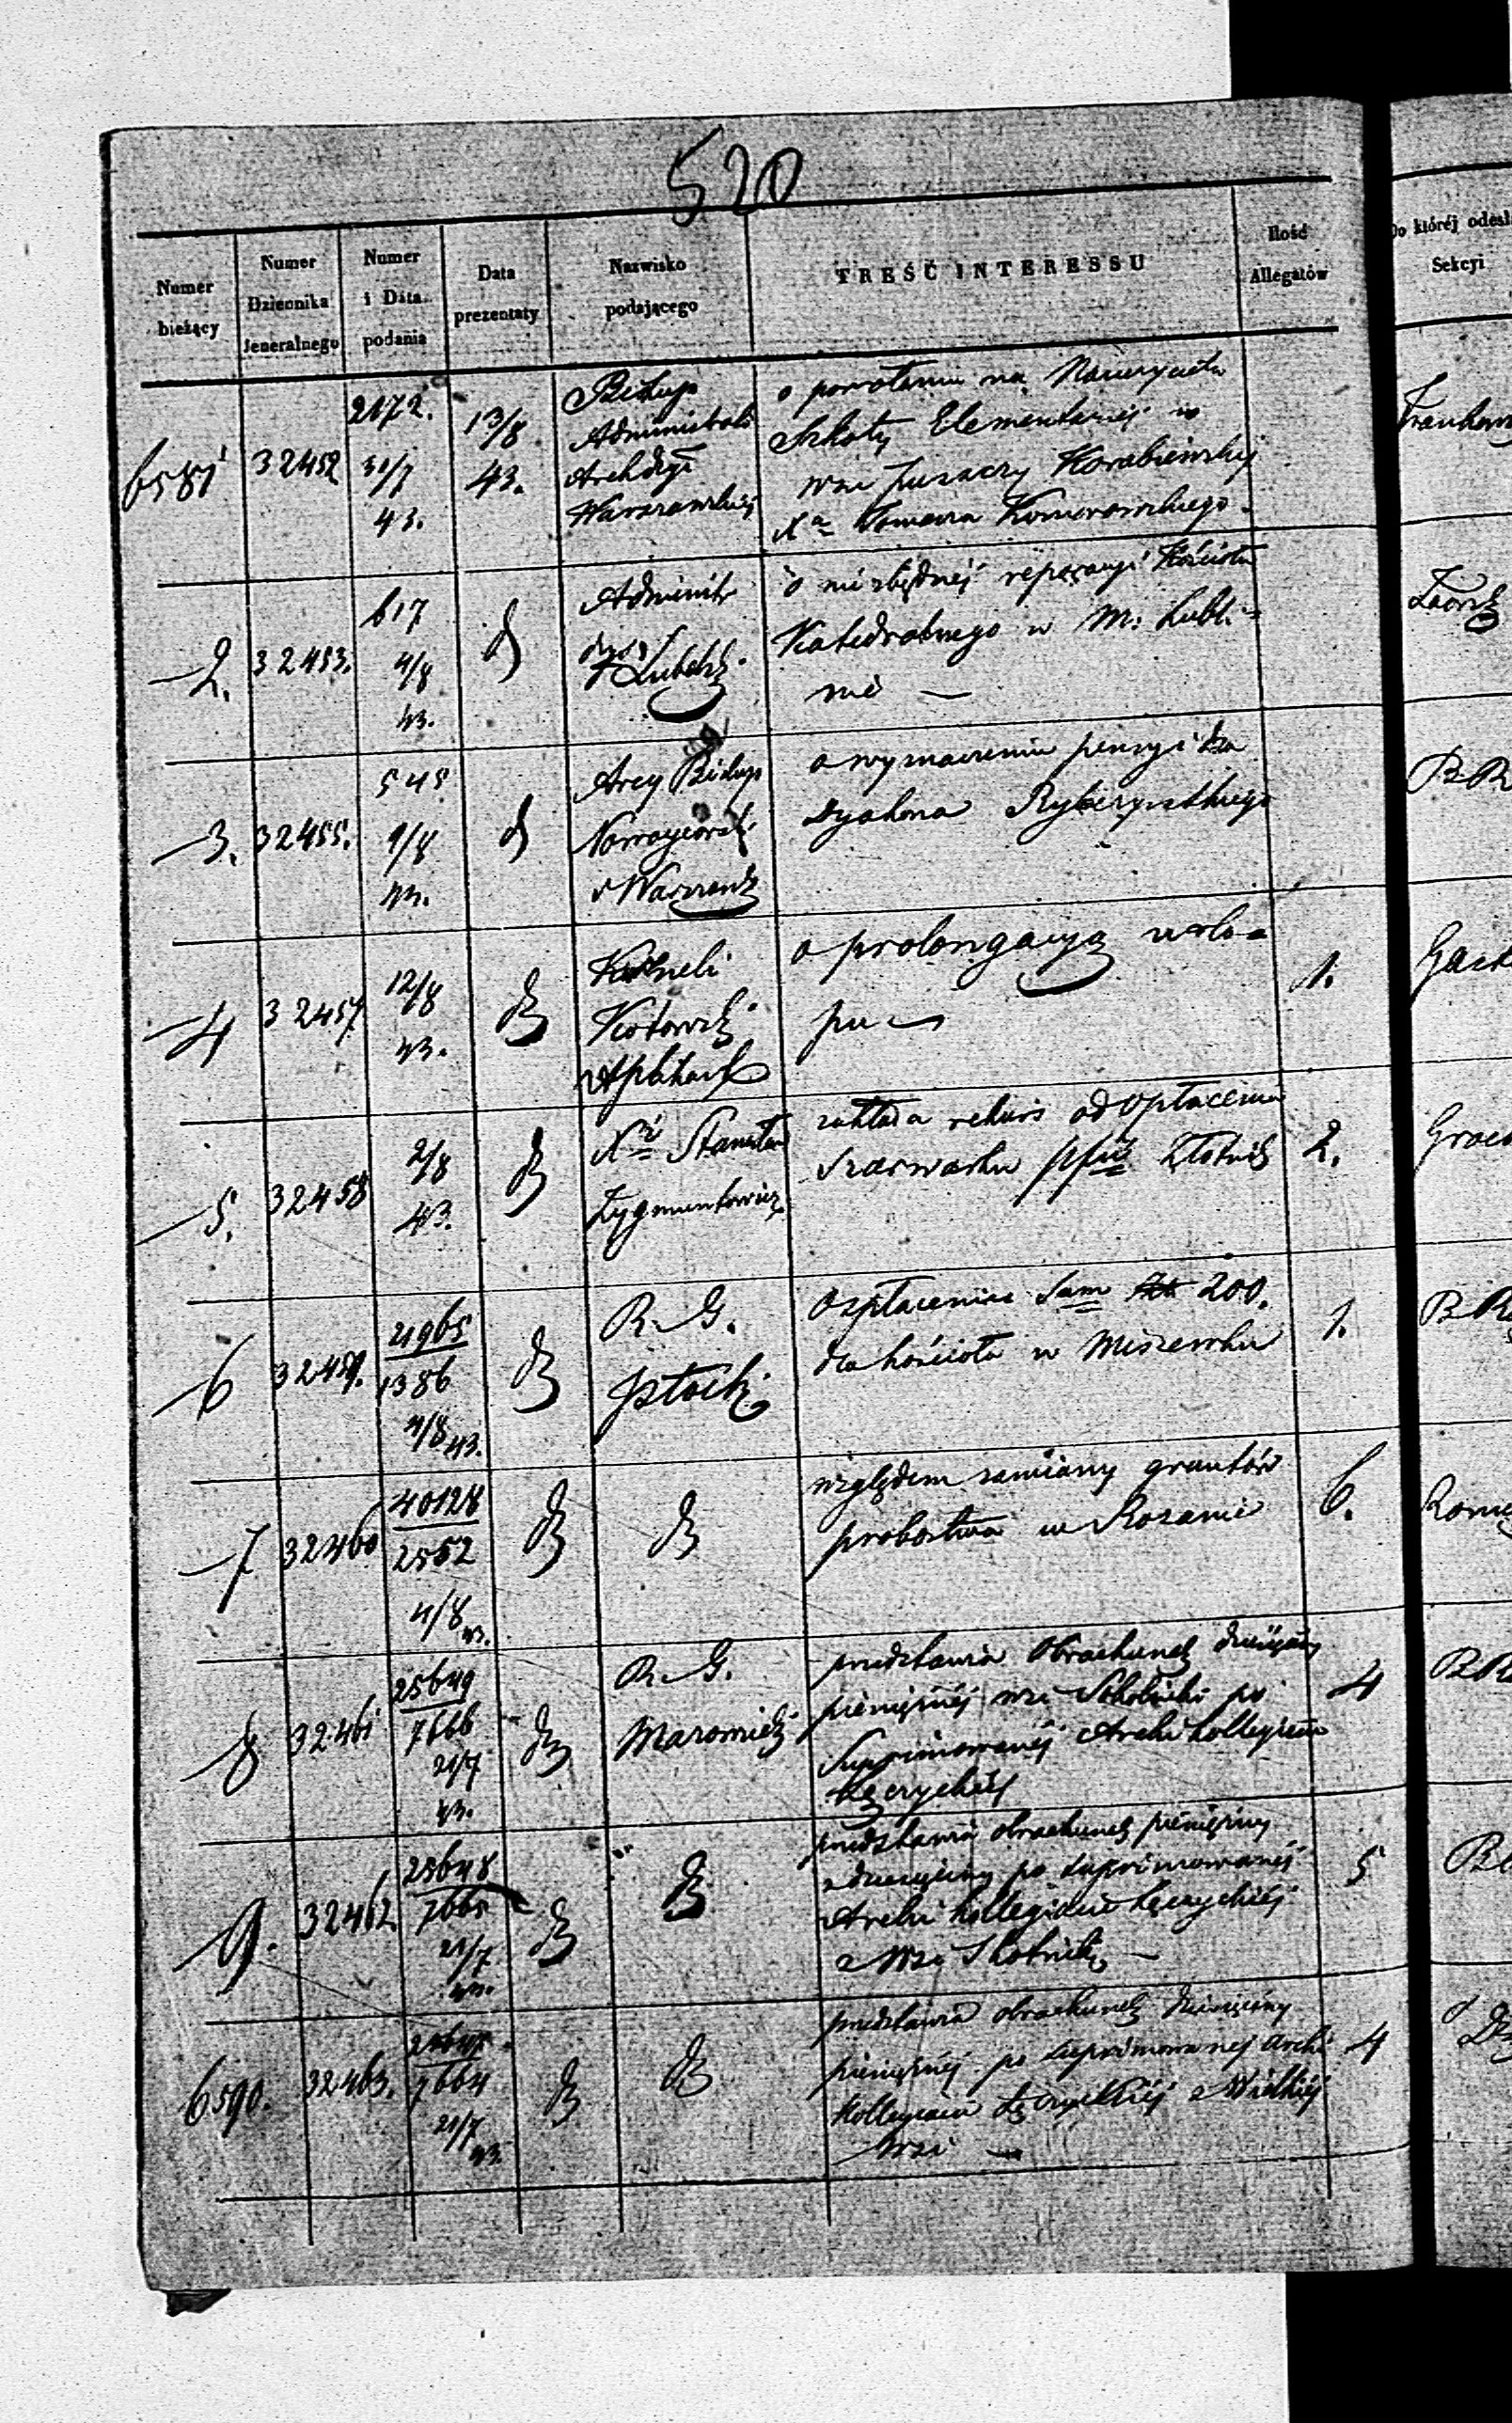 520
Numer bieżący
Numer Dziennika Jeneralnego
Numer i Data podania
Data prezentaty
Nazwisko podającego
TREŚĆ INTERESSU
Ilość Allegatów
Do któréj odesł
Sekcyi
6581
32452
2172.
31/7
43.
13/8
43.
Biskup
Administrator
Archidyi
Warszawskiej
o powołaniu na Nauczyciela
Szkoły Elementarnej w
wsi Puszczy Korabiewskiej
Xa Tomasza Komorowskiego.
2.
32453.
617
4/8
43.
d
Administr
dyi
Lubelsk
o niezbędnej reperacyi Kościoła
Katedralnego w M. Lubli-
nie —
3.
32455.
545
9/8
43.
d
Arcy Biskup
Nowogeorsk
i Warszawsk
o wyznaczeniu pensyi dla
Dyakona
B R
4
32457.
12/8
43.
d
Korneli
Kotowski
o prolongacyą urlo-
pu —
1.
5.
32458
2/8
43.
d
Xdz Stanisław
Zygmuntowicz
zakłada rekurs od opłacenia
Szarwarku
2.
6
32459.
21965
1386
4/8 43.
d
R. G.
Płocki
O zpłacenie Sum 200.
dla kościoła w Miszewku
1.
7
32460
40128
2552
4/8 43.
d
d
względem zamiany gruntów
probostwa w Rożanie
6.
8
32461
25649
7666
21/7
43.
d
R. G.
Mazowieck
przedstawia Obrachunek dziesięciny
pieniężnej wsi Sokolniki po
Suprimowanej Archikollegiacie
Łęczyckiej
4
9.
32462
25648
7665
21/7
43.
d
d
przedstawia obrachunek pieniężny
z dziesięciny po suprimowanej
Archi kollegiacie Łęczyckiej
z Wsi —
5
6590.
32463.
7664
21/7
43.
d
d
przedstawia obrachunek dziesięciny
pieniężnej po suprimowanej Archi
Kollegiacie Łęczyckiej z Wielkiej
Wsi —
4